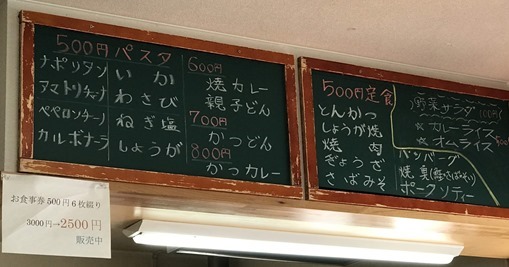 500円パスタ
ナポリタン
アマトリチャーナ
ペペロンチーノ
カルボナーラ
いか
わさび
ねぎ塩
しょうが
600円
焼カレー
親子どん
700円
かつどん
800円
かつカレー
500円定食
とんかつ
しょうが焼
焼肉
ぎょうざ
さばみそ
野菜サラダ
☆カレーライス
☆オムライス
ハンバーグ
ポークソティー
お食事券500円6枚綴り
3000円→2500円
販売中